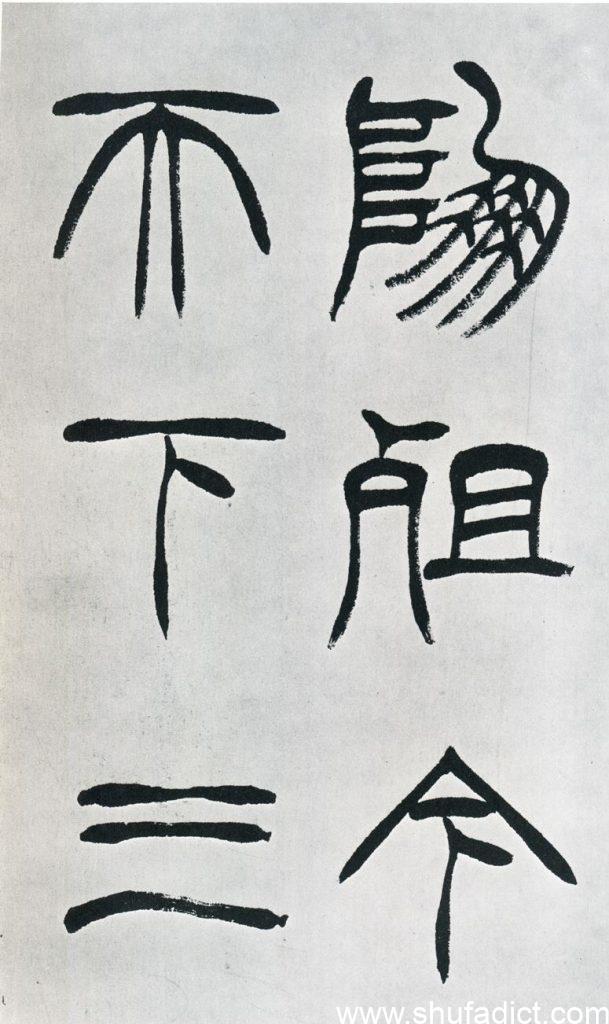 崩殂今
天下三
www.shufadict.com